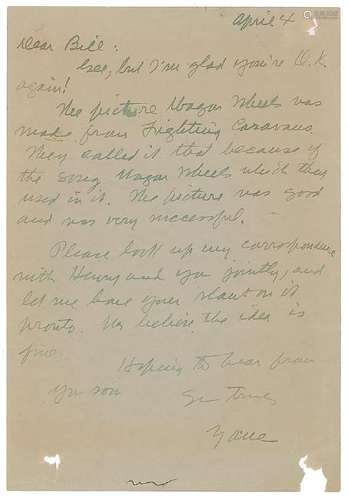 April 4
Dear Bill:
Gee, but I'm glad you're O.K.
again!
The picture Wagon Wheels was
made from Fighting Caravans.
They called it that because of
the song Wagon Wheels which they
used in it. The picture was good
and was very successful.
Please look up my correspondence
with Henry and you jointly, and
let me have your slant on it
pronto. We believe the idea is
fine.
Hoping to hear from
you soon
Zane